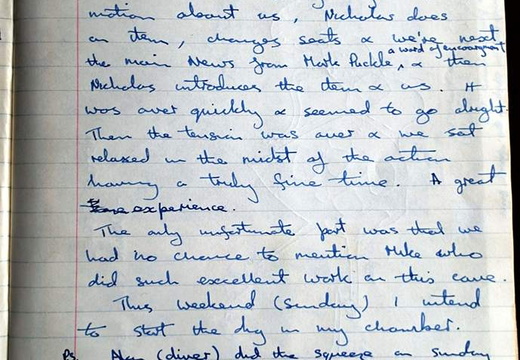 motion about us, Nicholas does
an item, changes seats & we're next
the main News from Mark Puckle, a word of encouragment & then
Nicholas introduces the item & us. It
was over quickly & seemed to go alright.
Then the tension was over & we sat
relaxed in the midst of the action
having a truly fine time. A great
experience.
The only unfortunate part was that we
had no chance to mention Mike who
did such excellent work on this cave.
This weekend (Sunday) I intend
to start the dig in my chamber.
Ps. Alan (diver) did the squeeze on Sunday